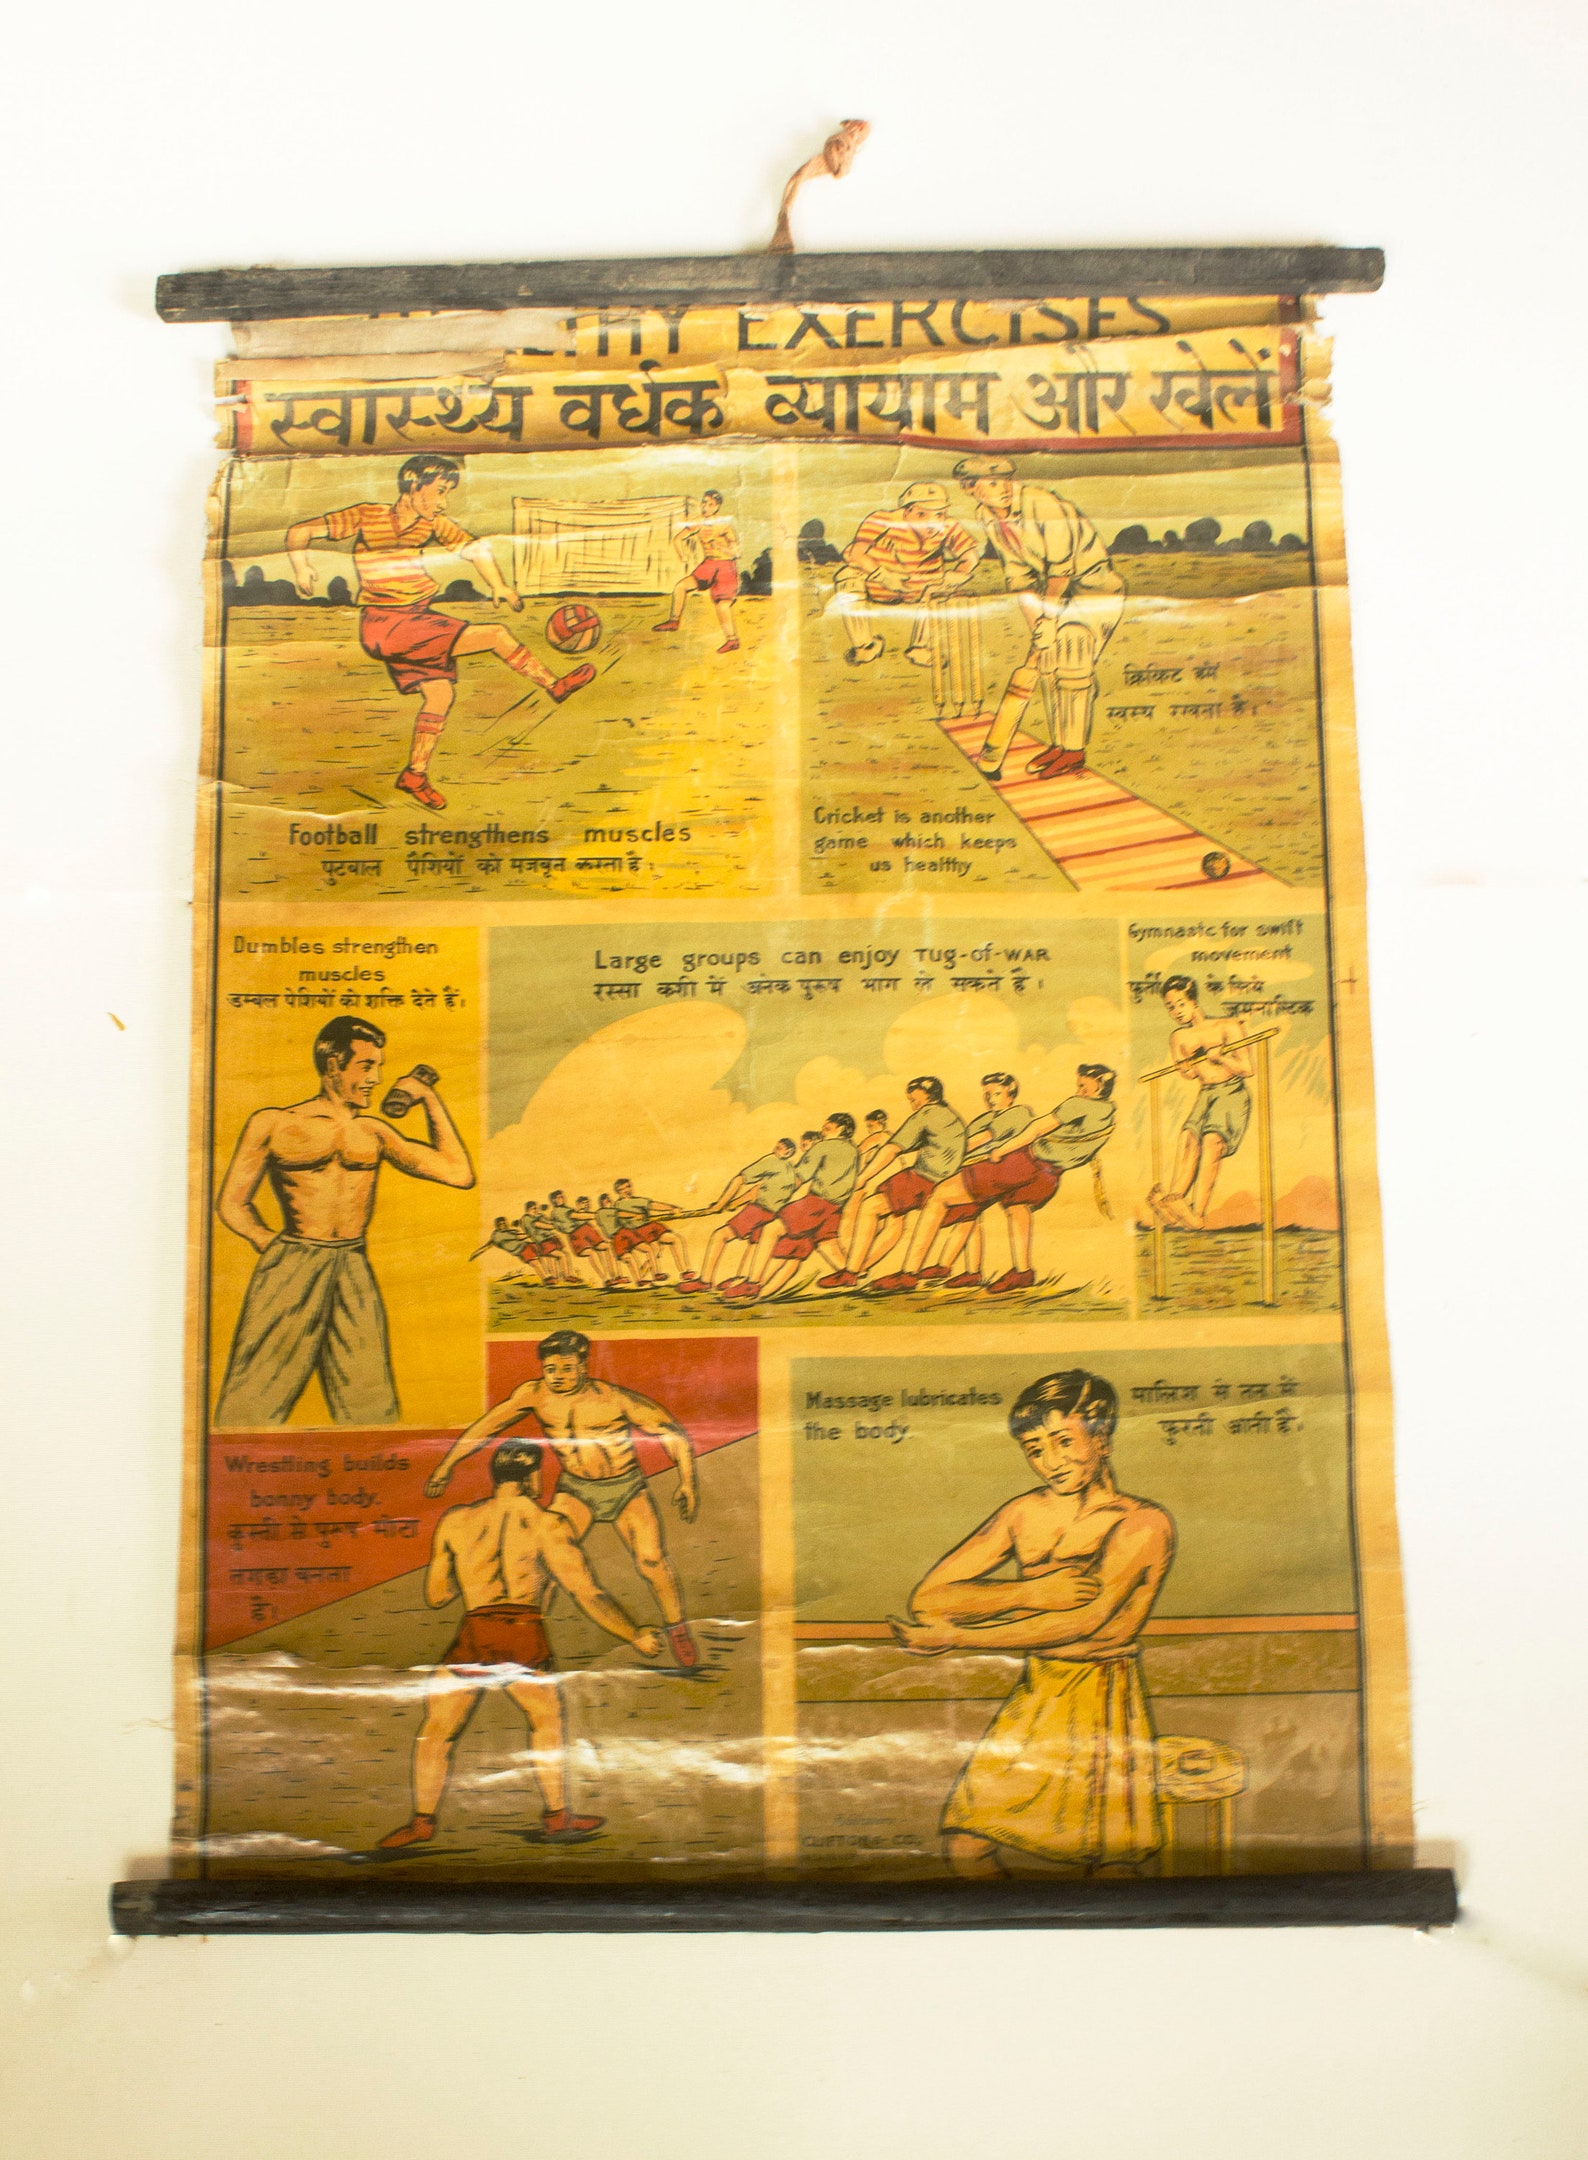 HEALTHY EXERCISES
स्वास्थ्य वर्धक व्यायाम और खेलें
Football strengthens muscles
पुटबाल पैशियों को मजबूत करता है।
क्रिकिट हमें
स्वस्थ रखता है।
Cricket is another
game which keeps
us healthy
Dumbles strengthen
muscles
डम्बल पेशियों को शक्ति देते हैं।
Large groups can enjoy TUG-of-WAR
रस्सा कशी में अनेक पुरुष भाग ले सकते है।
Gymnastc for swift
movement
फुर्ती के लिये
जमनास्टिक
Wrestling builds
bonny body.
कुस्ती से पुरुष मोटा
तगड़ा बनता
है।
Massage lubricates
the body.
मालिश से तन में
फुरती आती है।
CLIFTON & CO.